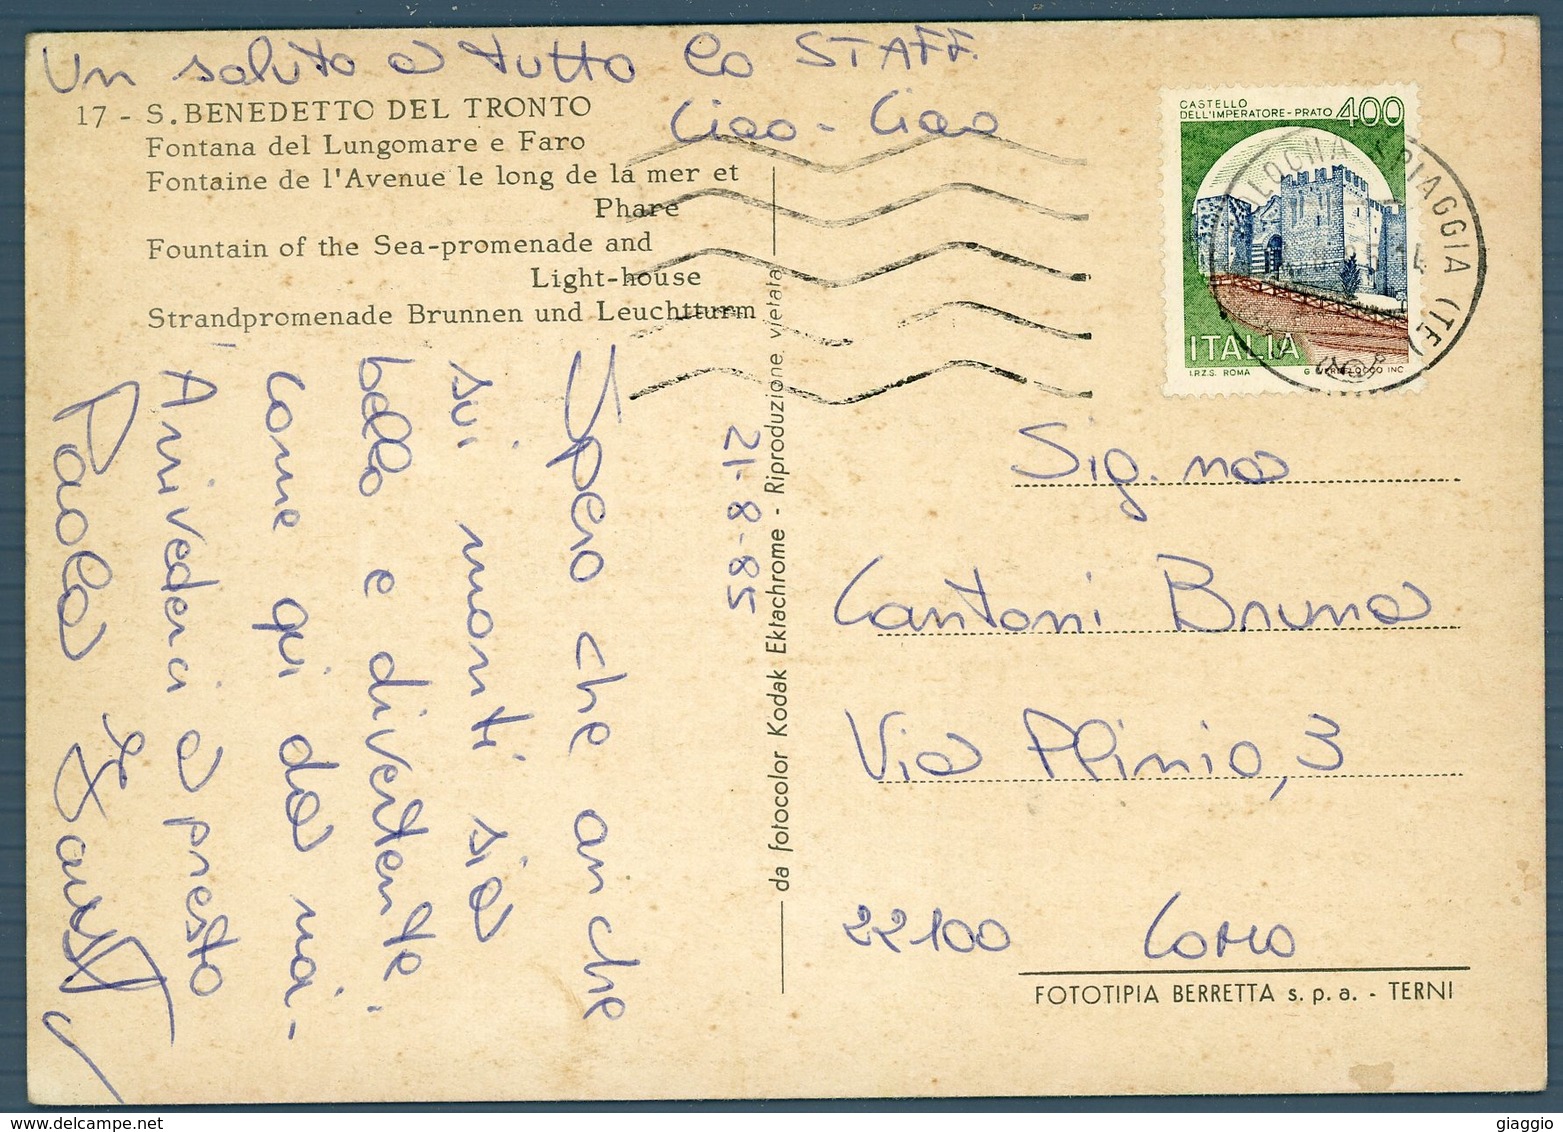 Un saluto a tutto lo STAFF.
Ciao - Ciao
17 - S. BENEDETTO DEL TRONTO
Fontana del Lungomare e Faro
Fontaine de l'Avenue le long de la mer et
Phare
Fountain of the Sea-promenade and
Light-house
Strandpromenade Brunnen und Leuchtturm
21-8-85
Spero che anche
sui monti sia
bello e divertente.
Come qui da noi.
Arrivederci a presto
Paola e
da fotocolor Kodak Ektachrome - Riproduzione vietata
CASTELLO
DELL'IMPERATORE-PRATO 400
ITALIA
I.P.Z.S. ROMA
INC
PIAGGIA (TE)
Sig.na
Cantoni Bruna
Via Plinio, 3
22100 Como
FOTOTIPIA BERRETTA s.p.a. - TERNI
giaggio